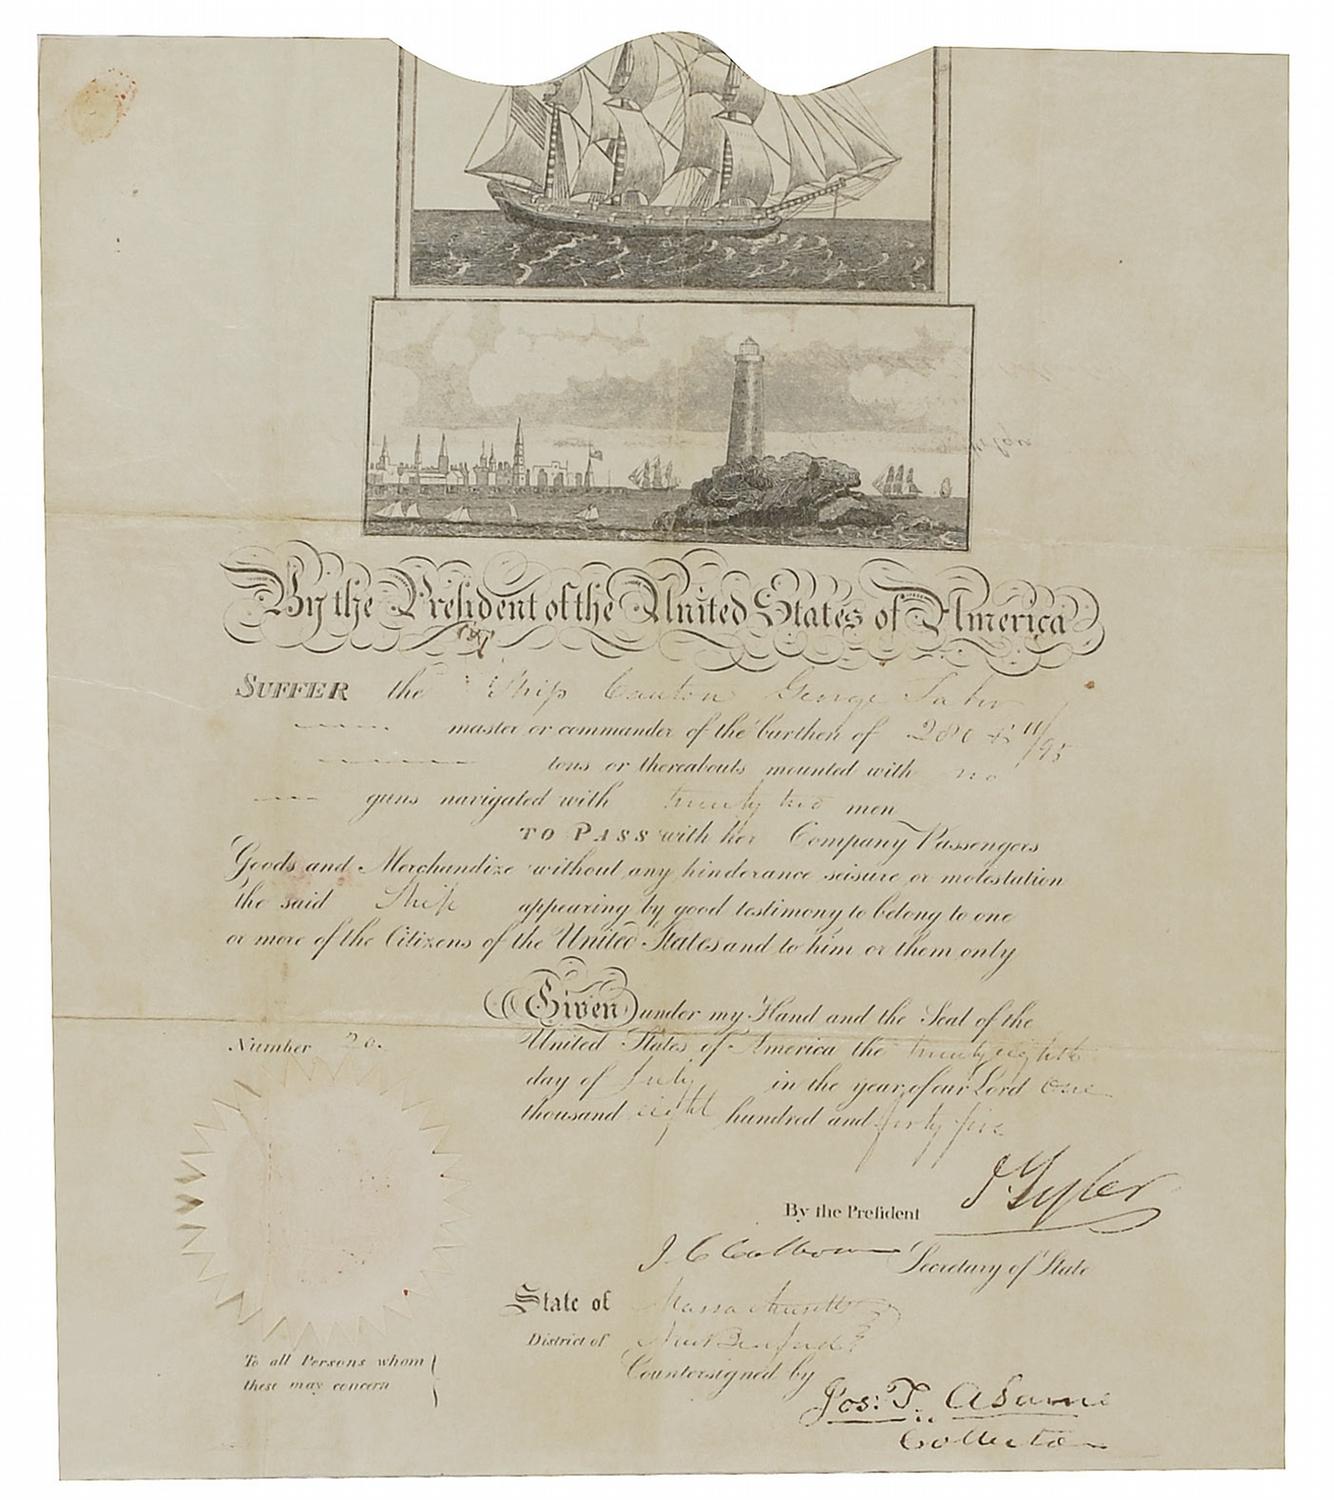 By the President of the United States of America
SUFFER the Ship Canton George Taber
master or commander of the burthen of 280 & 11/95
tons or thereabouts mounted with no
guns navigated with twenty two men
TO PASS with her Company Passengers
Goods and Merchandize without any hinderance seisure or molestation
the said Ship appearing by good testimony to belong to one
or more of the Citizens of the United States and to him or them only
Given under my Hand and the Seal of the
Number 20.
United States of America the twenty eighth
day of July in the year of our Lord one
thousand eight hundred and forty five
J Tyler
By the President
J. C Calhoun Secretary of State
State of Massachusetts
District of New Bedford
To all Persons whom
these may concern
Countersigned by
Jos: T. Adams
Collector